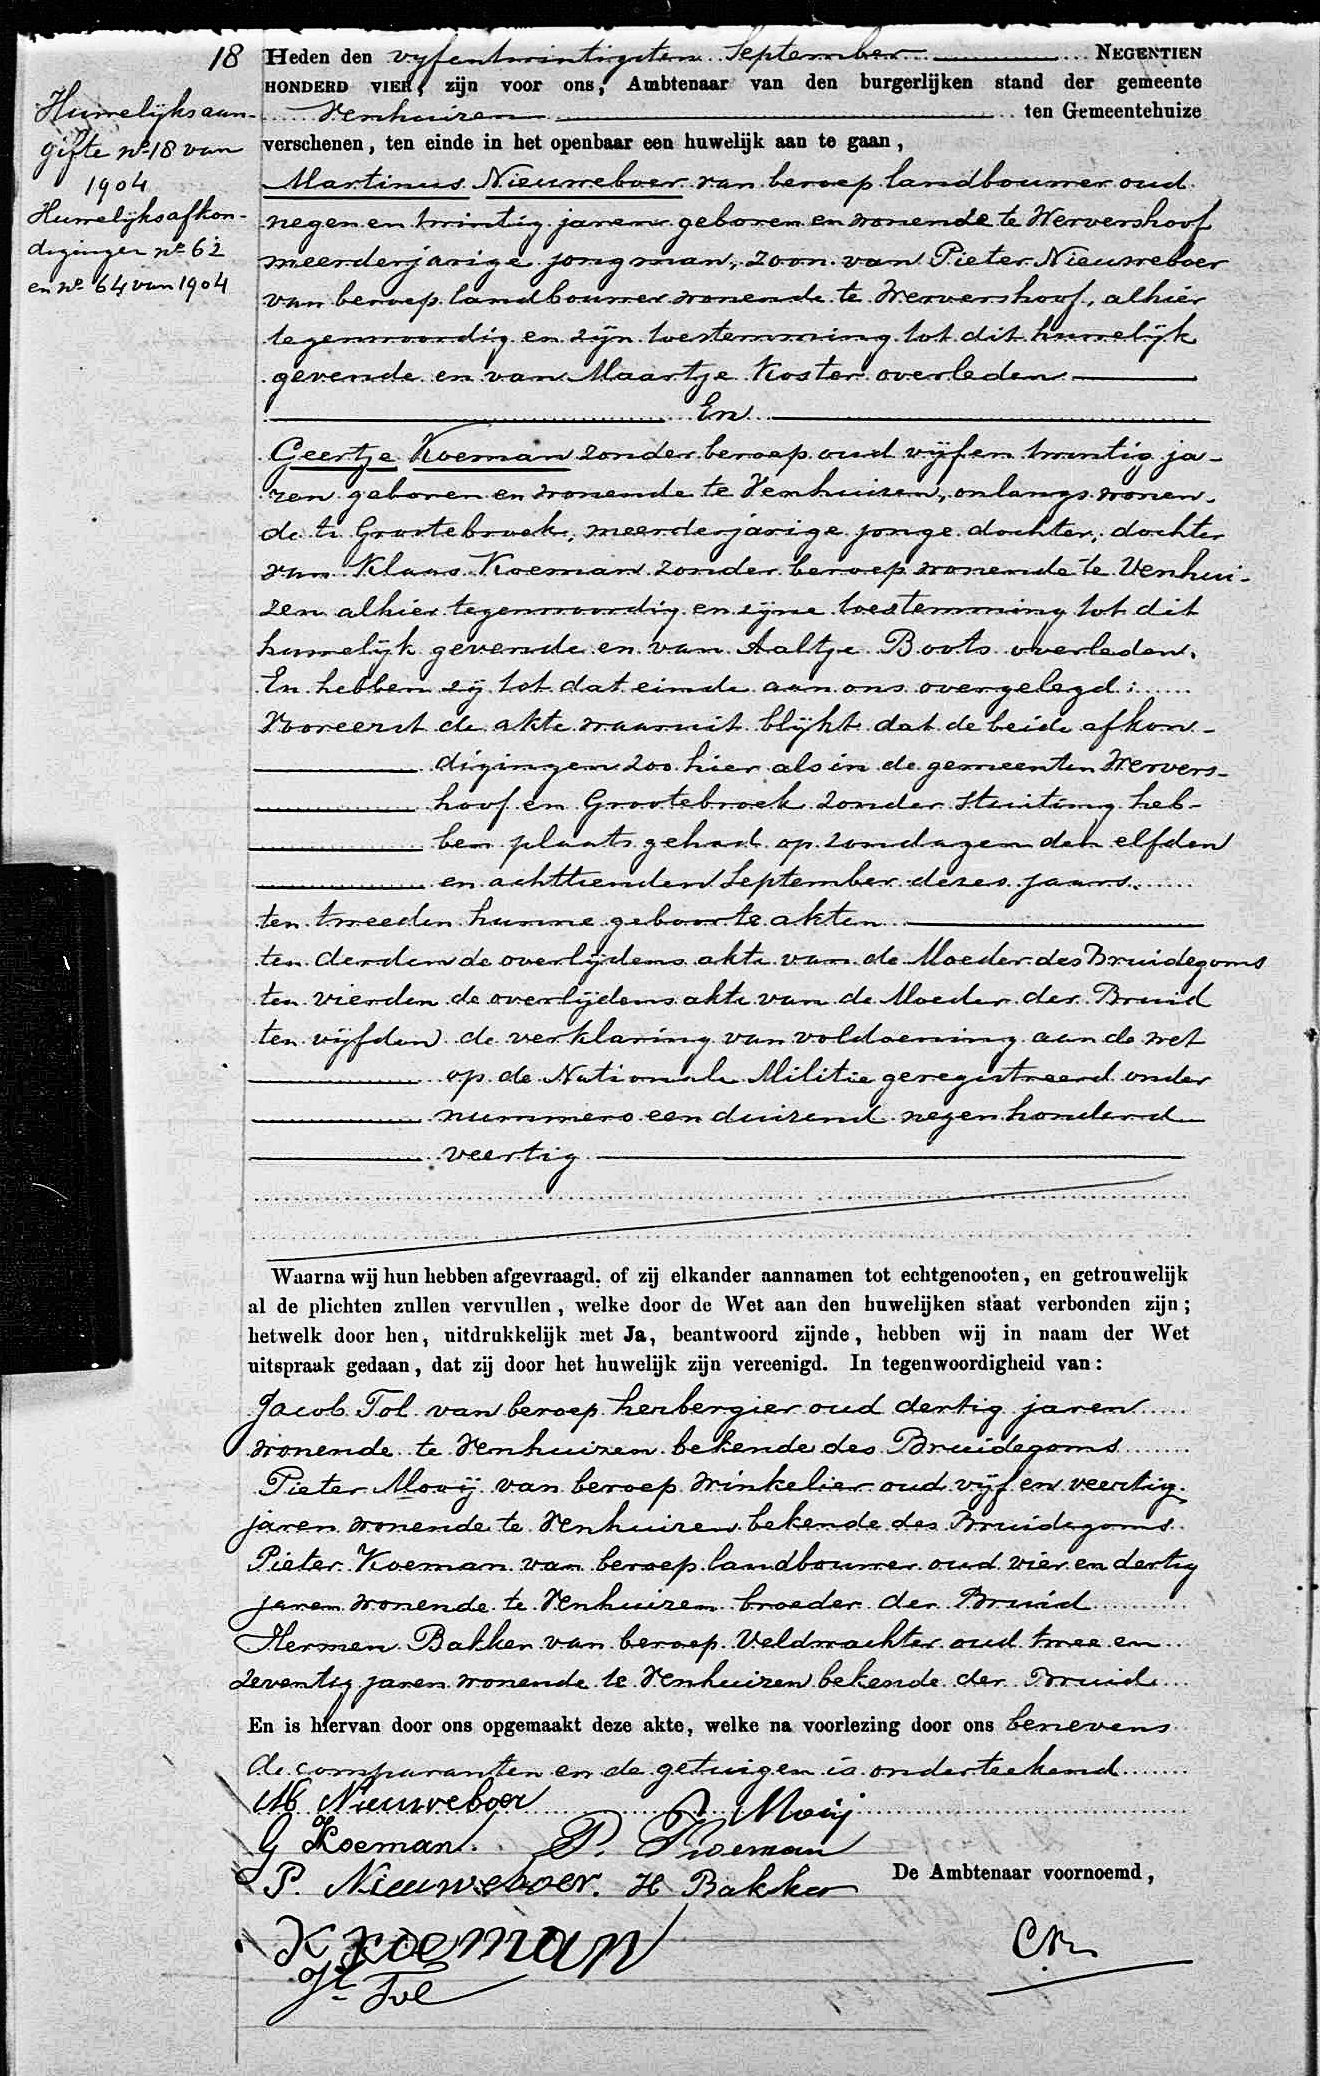 18
Huwelijksaan-
gifte no 18 van
1904
Huwelijksafkon-
digingen no 62
en no 64 van 1904
Heden den vyfentwintigsten September NEGENTIEN
HONDERD VIER, zijn voor ons, Ambtenaar van den burgerlijken stand der gemeente
Venhuizen ten Gemeentehuize
verschenen, ten einde in het openbaar een huwelijk aan te gaan,
Martinus Nieuweboer van beroep landbouwer oud
negen en twintig jaren geboren en wonende te Wervershoof
meerderjarige jongman, zoon van Pieter Nieuweboer
van beroep landbouwer wonende te Wervershoof, alhier
tegenwoordig en zijn toestemming tot dit huwelijk
gevende en van Maartje Koster overleden
En
Geertje Koeman zonder beroep oud vijf en twintig ja-
ren geboren en wonende te Venhuizen, onlangs wonen-
de te Grootebroek, meerderjarige jonge dochter, dochter
van Klaas Koeman zonder beroep wonende te Venhui-
zen alhier tegenwoordig en zijne toestemming tot dit
huwelijk gevende en van Aaltje Boots overleden.
En hebben zij tot dat einde aan ons overgelegd:
Vooreerst de akte waaruit blijkt dat de beide afkon-
digingen zoo hier als in de gemeenten Wervers-
hoof en Grootebroek zonder stuiting heb-
ben plaats gehad op zondagen den elfden
en achttienden September dezes jaars.
ten tweeden hunne geboorte akten
ten derden de overlijdens akte van de Moeder des Bruidegoms
ten vierden de overlijdens akte van de Moeder der Bruid
ten vijfden de verklaring van voldoening aan de wet
op de Nationale Militie geregistreerd onder
nummero een duizend negen honderd
veertig
Waarna wij hun hebben afgevraagd, of zij elkander aannamen tot echtgenooten, en getrouwelijk
al de plichten zullen vervullen, welke door de Wet aan den huwelijken staat verbonden zijn;
hetwelk door hen, uitdrukkelijk met Ja, beantwoord zijnde, hebben wij in naam der Wet
uitspraak gedaan, dat zij door het huwelijk zijn vereenigd. In tegenwoordigheid van:
Jacob Tol van beroep herbergier oud dertig jaren
wonende te Venhuizen bekende des Bruidegoms
Pieter Mooij van beroep winkelier oud vijf en veertig
jaren wonende te Venhuizen bekende des Bruidegoms
Pieter Koeman van beroep landbouwer oud vier en dertig
jaren wonende te Venhuizen broeder der Bruid
Hermen Bakker van beroep Veldwachter oud twee en
zeventig jaren wonende te Venhuizen bekende der Bruid
En is hiervan door ons opgemaakt deze akte, welke na voorlezing door ons benevens
de comparanten en de getuigen is onderteekend
M Nieuweboer
P Mooij
G Koeman. P. Koeman
P. Nieuweboer. H Bakker
De Ambtenaar voornoemd,
K Koeman
Jb Tol